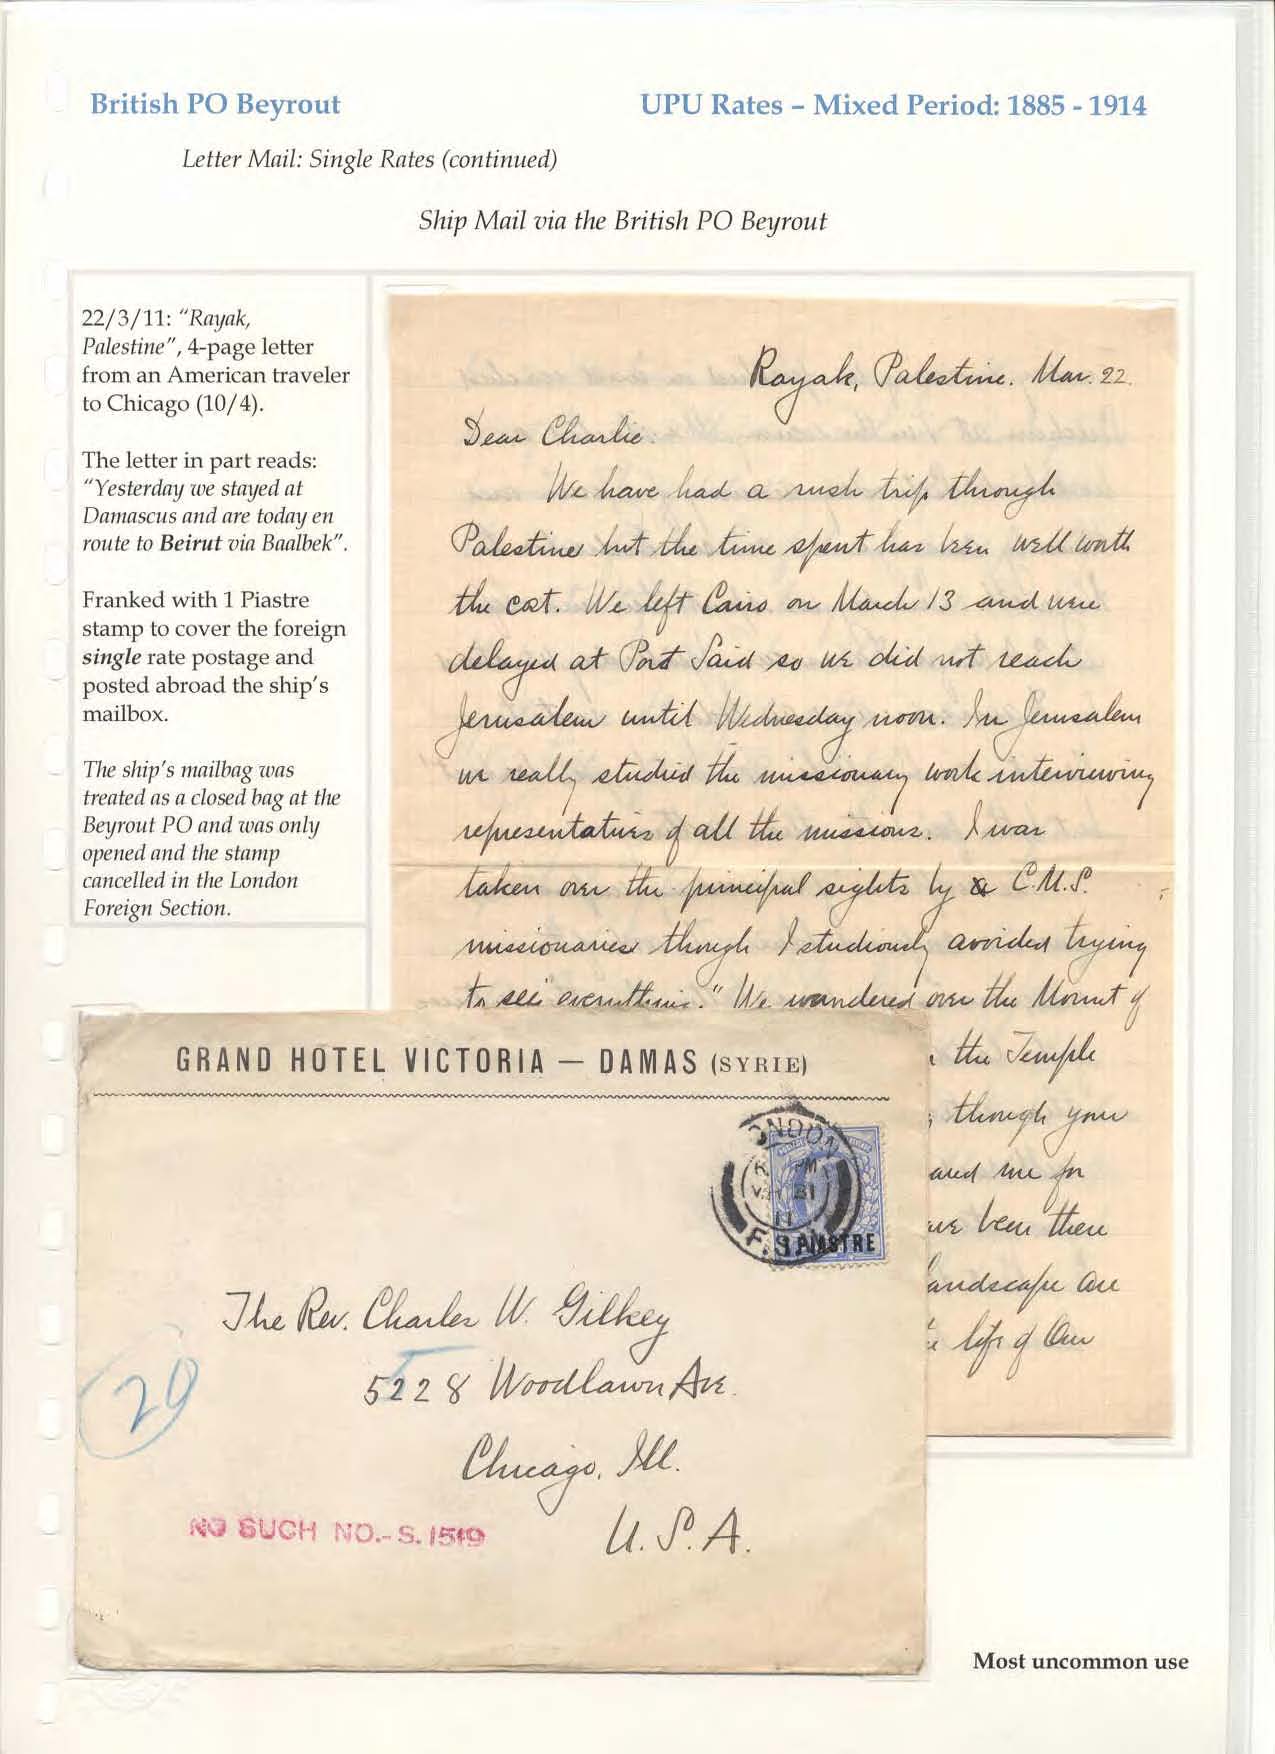 British PO Beyrout
UPU Rates – Mixed Period: 1885 - 1914
Letter Mail: Single Rates (continued)
Ship Mail via the British PO Beyrout
22/3/11: "Rayak,
Palestine", 4-page letter
from an American traveler
to Chicago (10/4).
The letter in part reads:
"Yesterday we stayed at
Damascus and are today en
route to Beirut via Baalbek".
Franked with 1 Piastre
stamp to cover the foreign
single rate postage and
posted abroad the ship's
mailbox.
The ship's mailbag was
treated as a closed bag at the
Beyrout PO and was only
opened and the stamp
cancelled in the London
Foreign Section.
Rayak, Palestine. Mar. 22.
Dear Charlie:
We have had a rush trip through
Palestine but the time spent has been well worth
the cost. We left Cairo on March 13 and were
delayed at Port Said so we did not reach
Jerusalem until Wednesday noon. In Jerusalem
we really studied the missionary work interviewing
representatives of all the missions. I was
taken over the principal sights by C.M.S.
missionaries though I studiously avoided trying
to see everything." We wandered over the Mount of
the Temple
though your
me for
been there
landscape are
life of Our
GRAND HOTEL VICTORIA — DAMAS (SYRIE)
LONDON
PM
31
11
F.S.
1 PIASTRE
The Rev. Charles W. Gilkey
5228 Woodlawn Ave.
Chicago, Ill.
U.S.A.
29
NO SUCH NO.- S. 1519
Most uncommon use